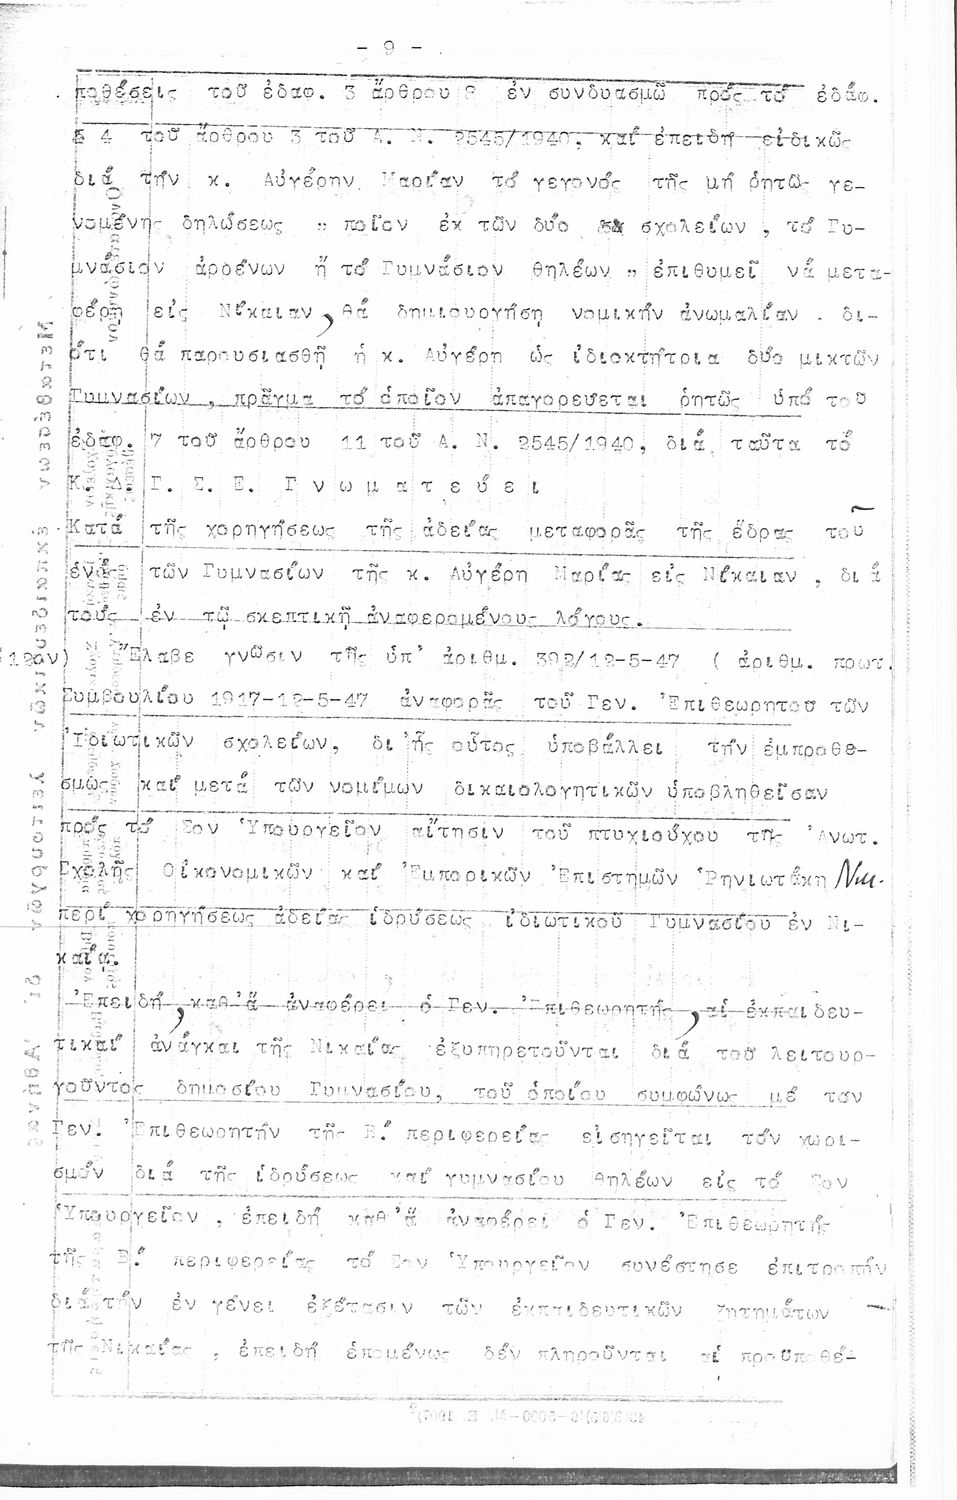 - 9 -
ποθέσεις τοῦ ἐδαφ. 3 ἄρθρου 8 ἐν συνδυασμῶ πρός τό ἐδάφ.
§ 4 τοῦ ἄρθρου 3 τοῦ Α. Ν. 2545/1940, καί ἐπειδή εἰδικῶς
διά τήν κ. Αὐγέρην Μαρίαν τό γεγονός τῆς μή ῥητῶς γε-
νομένης δηλώσεως " ποῖον ἐκ τῶν δύο σχολείων , τό Γυ-
μνάσιον ἀρρένων ἤ τό Γυμνάσιον θηλέων " ἐπιθυμεῖ νά μετα-
φέρη εἰς Νίκαιαν, θά δημιουργήση νομικήν ἀνωμαλίαν . δι-
ότι θά παρουσιασθῆ ἡ κ. Αὐγέρη ὡς ἰδιοκτήτρια δύο μικτῶν
Γυμνασίων , πρᾶγμα τό ὁποῖον ἀπαγορεύεται ῥητῶς ὑπό τοῦ
ἐδάφ. 7 τοῦ ἄρθρου 11 τοῦ Α. Ν. 2545/1940, διά ταῦτα τό
Κ. Δ. Γ. Σ. Ε. Γ ν ω μ α τ ε ύ ε ι
Κατά τῆς χορηγήσεως τῆς ἀδείας μεταφορᾶς τῆς ἕδρας τοῦ
ἑνός τῶν Γυμνασίων τῆς κ. Αὐγέρη Μαρίας εἰς Νίκαιαν , διά
τούς ἐν τῷ σκεπτικῆ ἀναφερομένους λόγους.
12ον) Ἔλαβε γνῶσιν τῆς ὑπ' ἀριθμ. 392/12-5-47 ( ἀριθμ. πρωτ.
Συμβουλίου 1917-12-5-47 ἀναφορᾶς τοῦ Γεν. Ἐπιθεωρητοῦ τῶν
Ἰδιωτικῶν σχολείων, δι ἧς οὗτος ὑποβάλλει τήν ἐμπροθε-
σμως καί μετά τῶν νομίμων δικαιολογητικῶν ὑποβληθεῖσαν
πρός τό Σον Ὑπουργεῖον αἴτησιν τοῦ πτυχιούχου τῆς Ἀνωτ.
Σχολῆς Οἰκονομικῶν καί Ἐμπορικῶν Ἐπιστημῶν Ῥηνιωτάκη Νικ.
περί χορηγήσεως ἀδείας ἱδρύσεως ἰδιωτικοῦ Γυμνασίου ἐν Νι-
καία.
Ἐπειδή, καθ'ἅ ἀναφέρει ὁ Γεν. Ἐπιθεωρητής, αἱ ἐκπαιδευ-
τικαί ἀνάγκαι τῆς Νικαίας ἐξυπηρετοῦνται διά τοῦ λειτουρ-
γοῦντος δημοσίου Γυμνασίου, τοῦ ὁποίου συμφώνως μέ τον
Γεν. Ἐπιθεωρητήν τῆς Β΄ περιφερείας εἰσηγεῖται τόν χωρι-
σμόν διά τῆς ἱδρύσεως καί γυμνασίου θηλέων εἰς τό Σον
Ὑπουργεῖον , ἐπειδή καθ'ἅ ἀναφέρει ὁ Γεν. Ἐπιθεωρητής
τῆς Β΄ περιφερείας τό Σον Ὑπουργεῖον συνέστησε ἐπιτροπήν
διά τήν ἐν γένει ἐξέτασιν τῶν ἐκπαιδευτικῶν ζητημάτων
τῆς Νικαίας , ἐπειδή ἑπομένως δέν πληροῦνται αἱ προϋποθέ-